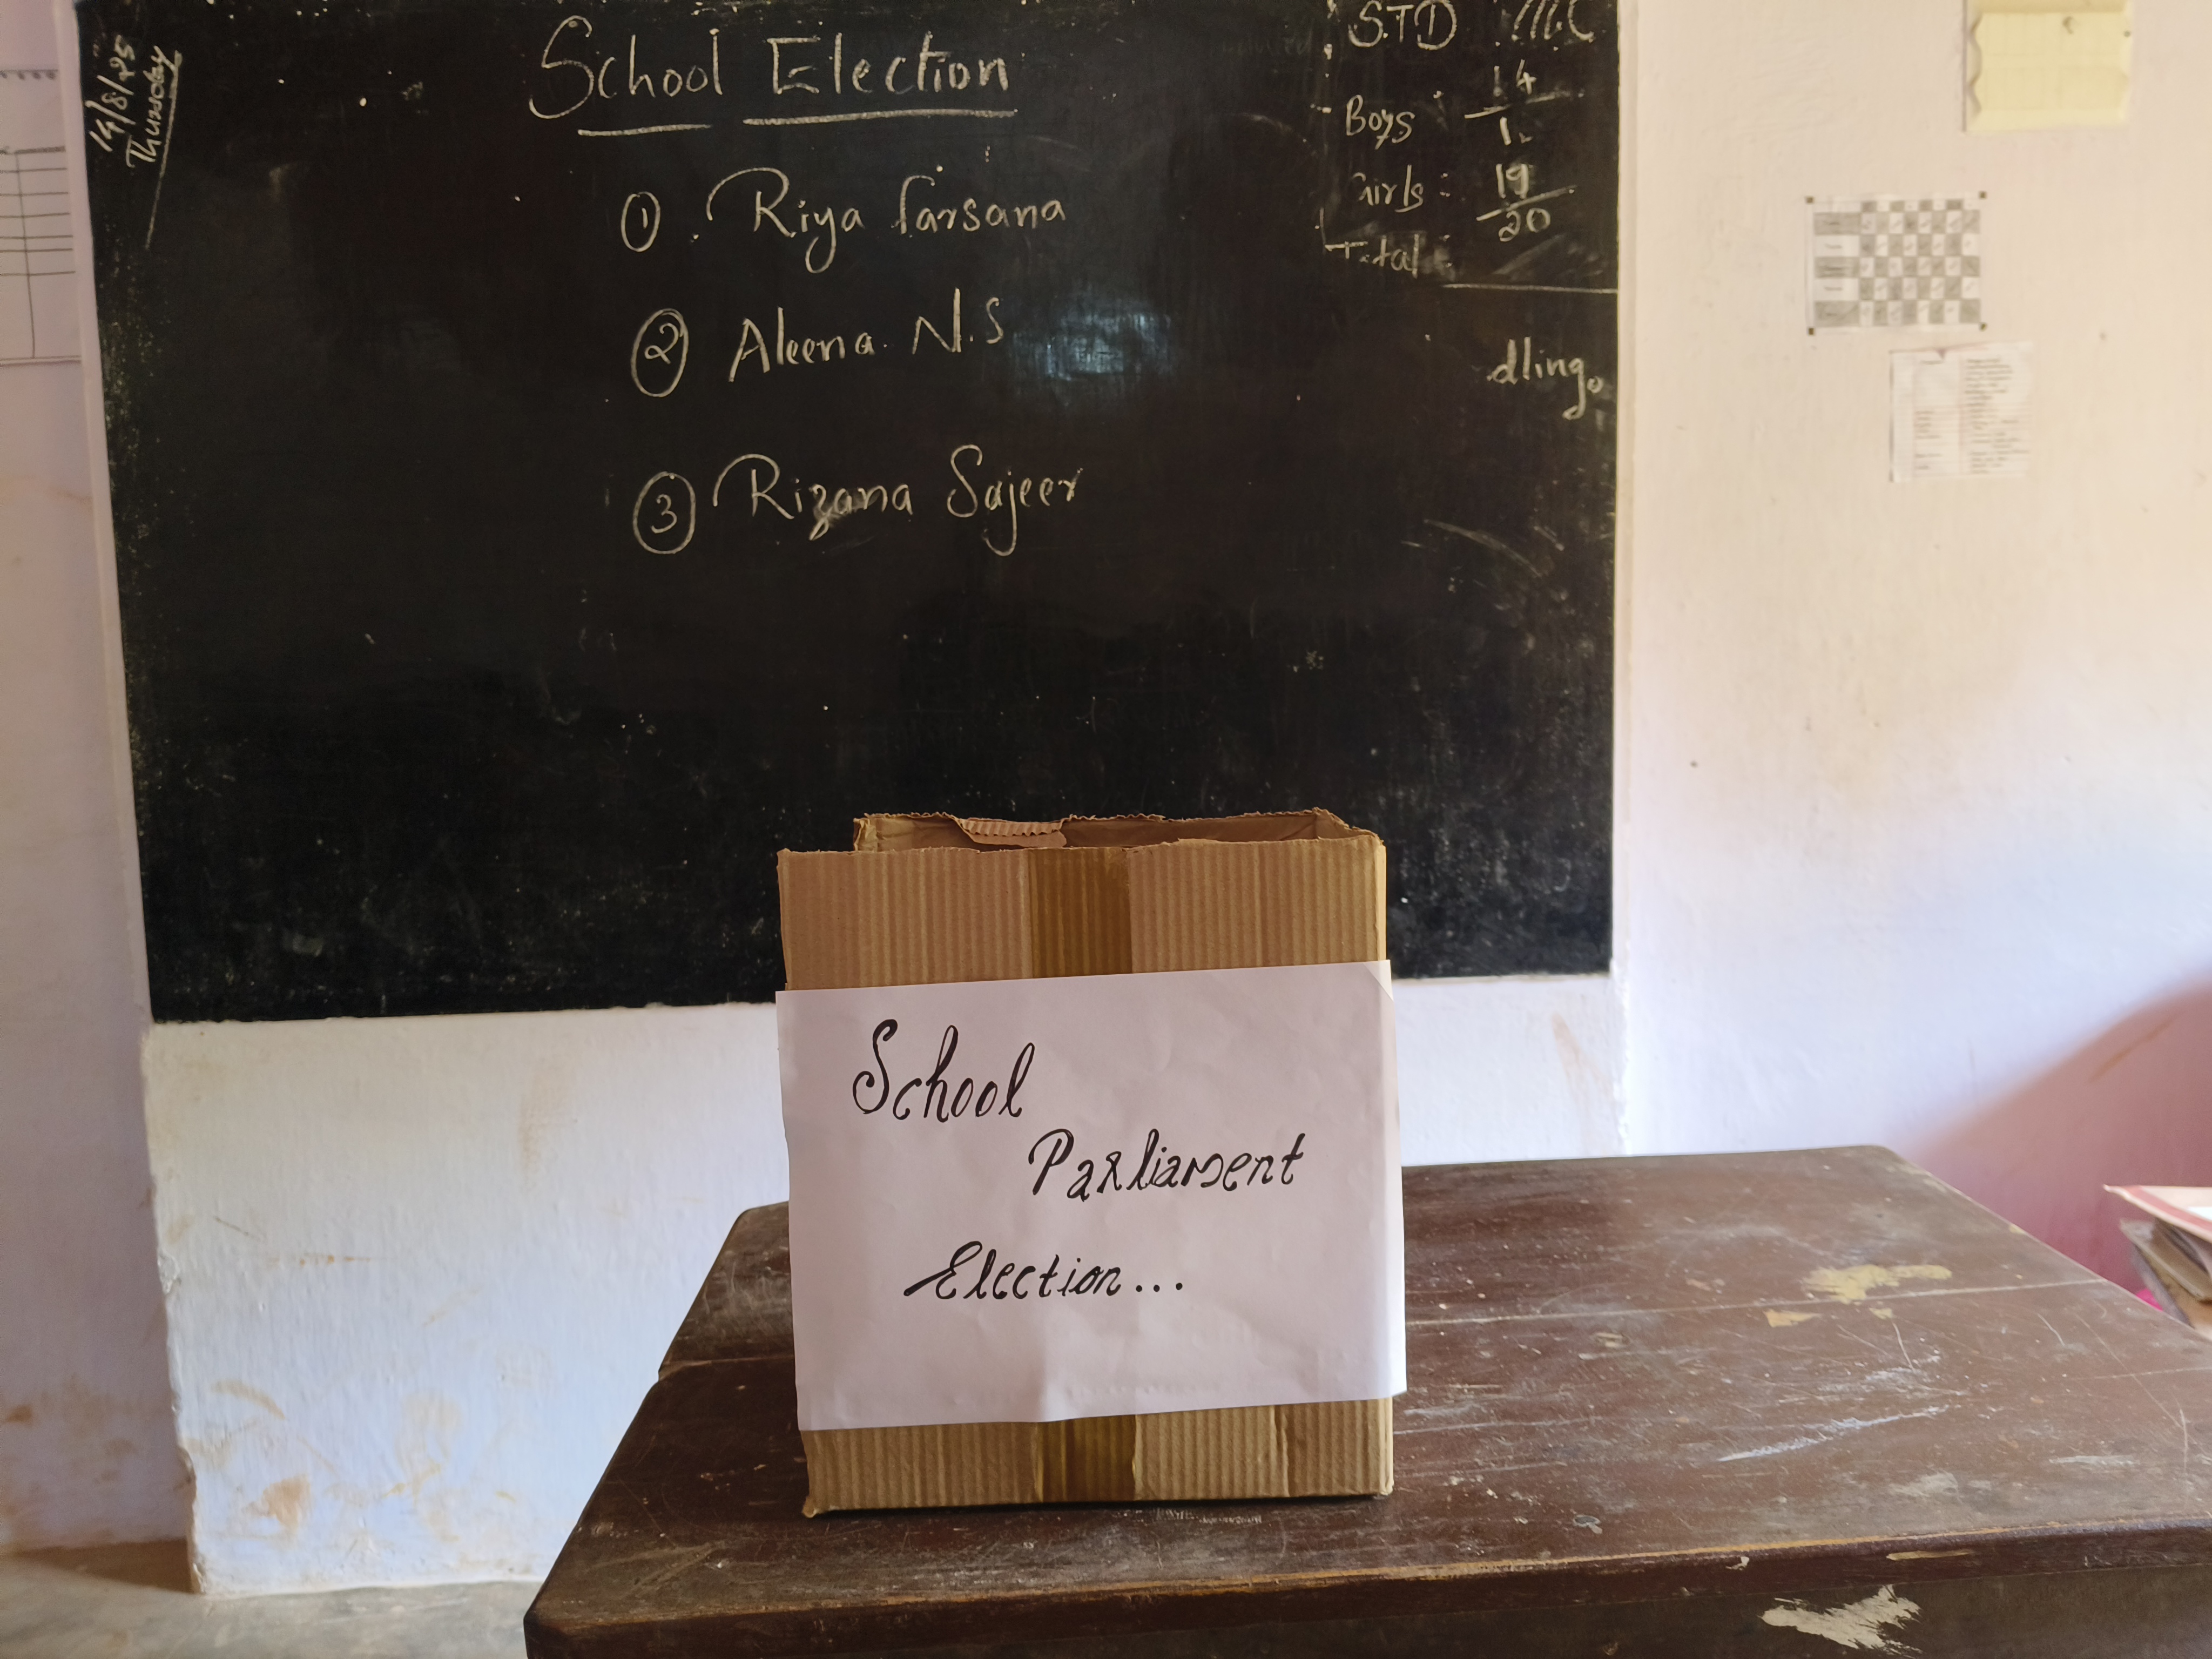 14/8/25
Thursday
School Election
① Riya farsana
② Aleena. N.S
③ Rizana Sajeer
STD
Boys : 14
Girls : 19
20
Total
School
Parliament
Election...